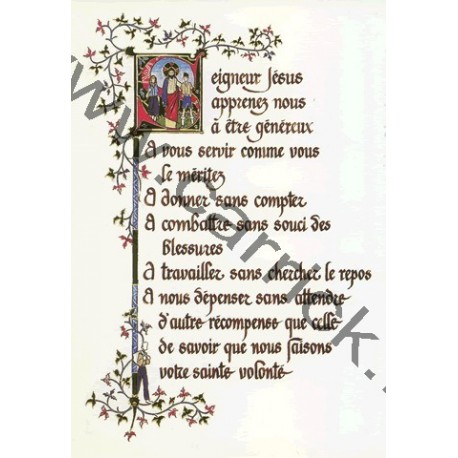 Seigneur Jésus
apprenez nous
à être généreux
A vous servir comme vous
le méritez
A donner sans compter
A combattre sans souci des
blessures
A travailler sans chercher le repos
A nous dépenser sans attendre
d'autre récompense que celle
de savoir que nous faisons
votre sainte volonté
www.carrick.